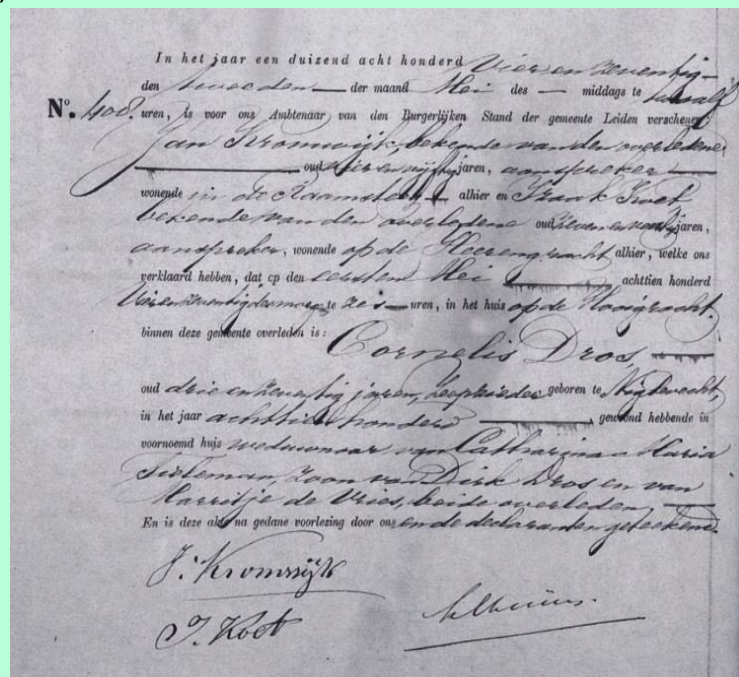 In het jaar een duizend acht honderd Vier en zeventig
den tweeden der maand Mei des middags te twaalf
No. 408. uren, is voor ons Ambtenaar van den Burgerlijken Stand der gemeente Leiden verschenen:
Jan Kromwijk, bekende van den overledene
oud vier en vijftig jaren, aanspreker
wonende in de Raamsteeg alhier en Koet
bekende van den overledene oud jaren,
aanspreker, wonende op de Heerengracht alhier, welke ons
verklaard hebben, dat op den eersten Mei achttien honderd
Vier en zeventig des morg te zes uren, in het huis op de Hooigracht
binnen deze gemeente overleden is:
Cornelis Dros,
oud drie en zeventig jaren, geboren te
in het jaar achttien honderd gewoond hebbende in
voornoemd huis weduwnaar van Catharina Maria
Tieleman, zoon van Dirk Dros en van
Marritje de Vries, beide overleden
En is deze akte na gedane voorlezing door ons en de declaranten geteekend.
J. Kromwijk
J. Koet